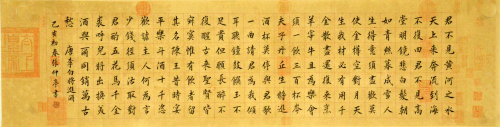 君不見黃河之水
天上來奔流到海
不復回君不見高
堂明鏡悲白髮朝
如青絲暮成雪人
生得意須盡歡莫
使金樽空對月天
生我材必有用千
金散盡還復來烹
羊宰牛且為樂會
須一飲三百杯岑
夫子丹丘生將進
酒杯莫停與君歌
一曲請君為我傾
耳聽鐘鼓饌玉不
足貴但願長醉不
復醒古來聖賢皆
寂寞惟有飲者留
其名陳王昔時宴
平樂斗酒十千恣
歡謔主人何為言
少錢徑須沽取對
君酌五花馬千金
裘呼兒將出換美
酒與爾同銷萬古
愁 唐李白將進酒
己亥初春張仲亭書